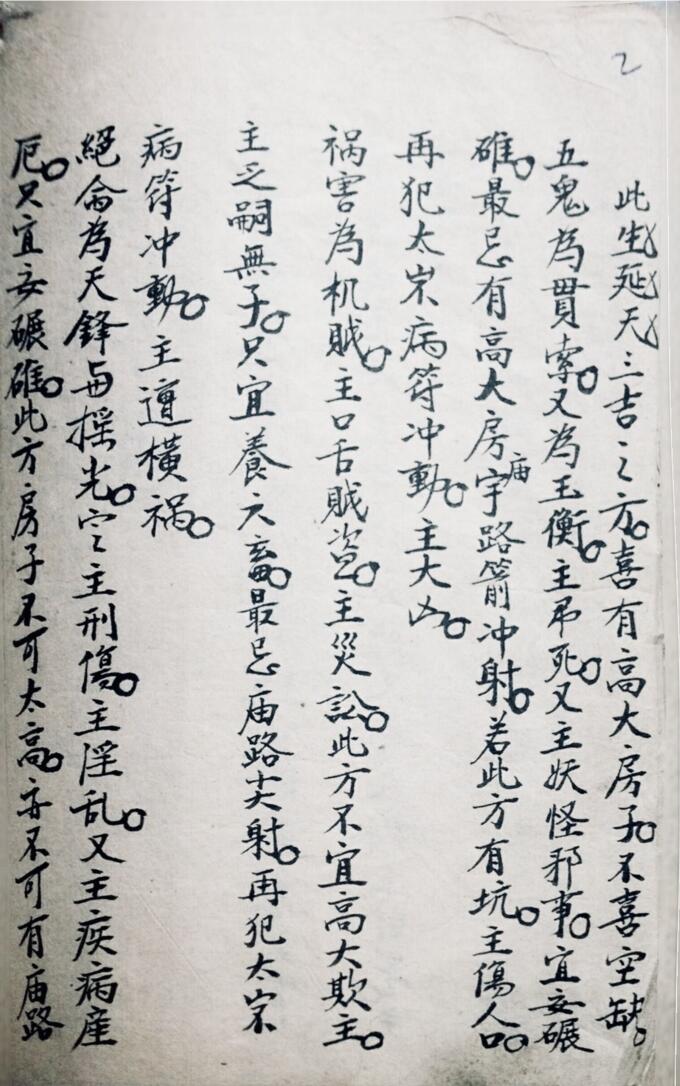 2
此生延天三吉之方。喜有高大房子。不喜空缺。
五鬼為貫索。又為玉衡。主吊死。又主妖怪邪事。宜安碾
碓。最忌有高大房宇庙路箭冲射。若此方有坑。主傷人口。
再犯太岁病符冲動。主大凶。
祸害為机贼。主口舌贼盗。主災訟。此方不宜高大欺主。
主乏嗣無子。只宜養六畜。最忌庙路尖射。再犯太岁
病符冲動。主遭横祸。
絕命為天鋒与摇光。它主刑傷。主淫乱。又主疾病産
厄。只宜安碾碓。此方房子不可太高。亦不可有庙路